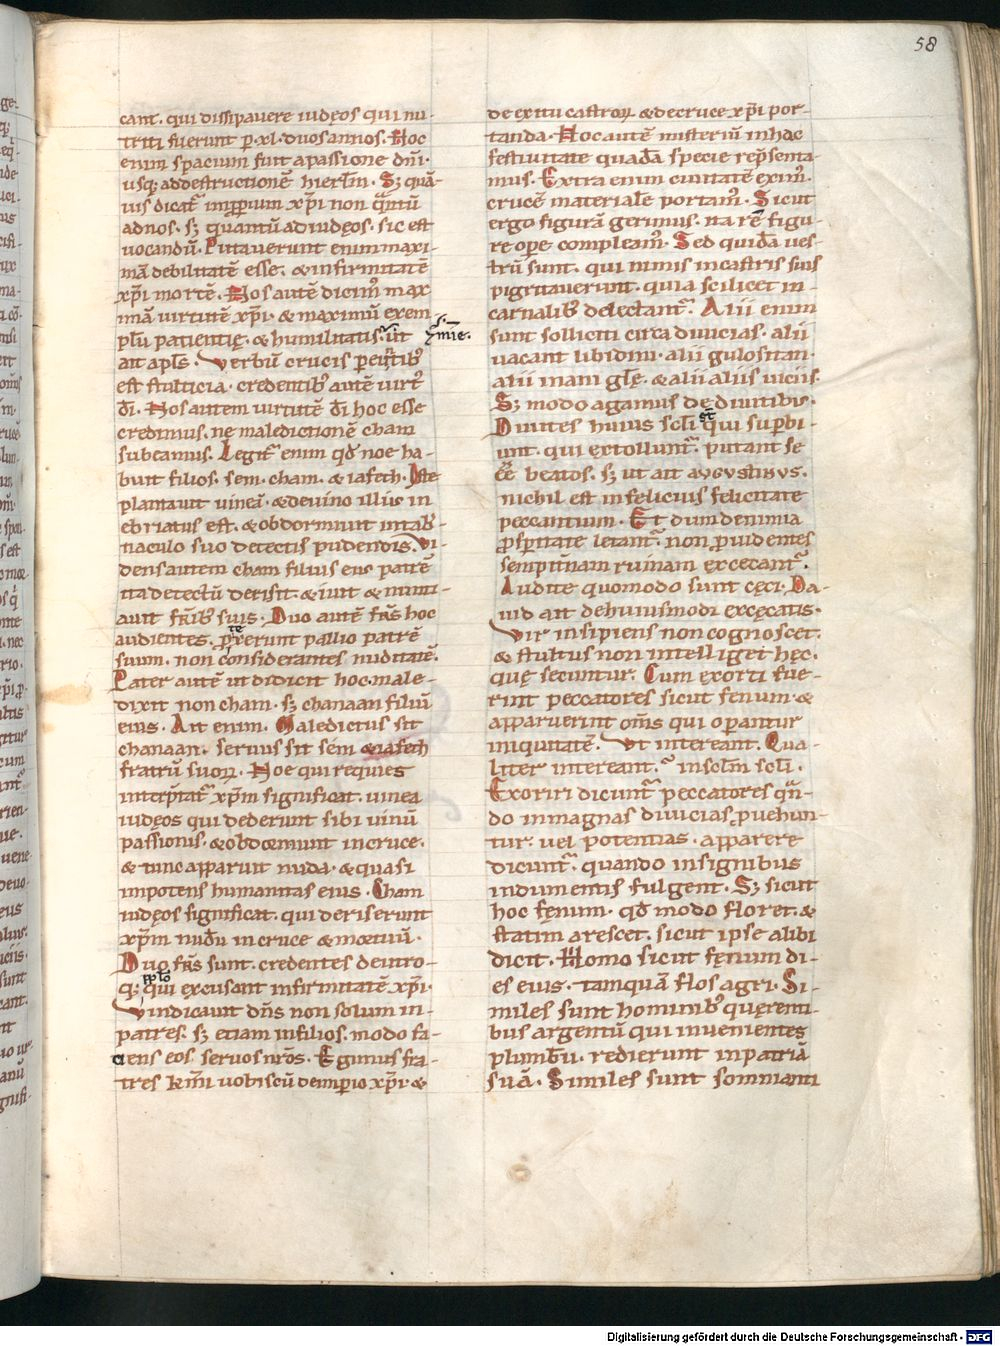 58
cant. qui dissipavere iudęos qui nu-
triti fuerunt p̱ .xl. duos annos. Hoc
enim spacium fuit a passione dn̄i.
usq; ad destructionē hierl̄m. Sꝫ quā-
vis dicat᷑ imp̱ium xp̄i non q̄ntū
ad nos. sꝫ quantū ad iudęos. sic est
vocandū. Putaverunt enim maxi-
mā debilitatē esse. & infirmitatē
xp̄i mortē. Nos autē dicim᷒ max
imā virtutē xp̄i. & maximū exem
plū patientię. & humilitatis. ut
s. mīe.
ait apl̄s. Verbū crucis p̱eūtib᷒
est stulticia. credentib᷒ autē virt᷒
dī. Nos autem virtutē dī hoc esse
credimus. ne maledictionē cham
subeamus. Legit᷑ enim qd̄ noe ha-
buit filios. sem. cham. & iafech. Iste
plantavit vineā. & de vino illius in
ebriatus est. & obdormivit in tab̄-
naculo suo detectis pudendis. Vi-
dens autem cham filius eius patrē
ita detectū derisit. & ivit & nunti-
avit fr̄ib᷒ suis. Duo autē fr̄s hoc
te
audientes. p̱xerunt pallio patrē
suum. non considerantes nuditatē.
Pater autē ut didicit hoc. male-
dixit non cham. sꝫ chanaan filiū
eius. Ait enim. Maledictus sit
chanaan. servus sit sem & iafech
fratrū suoꝝ. Noe qui requies
interp̄tat᷑ xp̄m significat. vinea
iudęos qui dederunt sibi vinū
passionis. & obdormivit in cruce.
& tunc apparuit nuda. & quasi
impotens humanitas eius. Cham
iudęos significat. qui deriserunt
xp̄m nudū in cruce & mortuū.
Duo fr̄s sunt. credentes de utro-
pp̄lo
q; qui excusant infirmitatē xp̄i.
Vindicavit dn̄s non solum in
patres. sꝫ etiam in filios. modo fa-
ciens eos servos nr̄os. Egimus fra-
tres km̄i vobiscū de imp̱io xp̄i. &
de exitu castroꝝ. & de cruce xp̄i por-
tanda. Hoc autē misteriū in hac
festivitate quadā specie rep̄senta-
mus. Extra enim civitatē exim᷒.
crucē materialē portam᷒. Sicut
ergo figurā gerimus. ita rē figu-
re ope compleam᷒. Sed quidā ves-
trū sunt. qui nimis in castris suis
pigritaverunt. quia scilicet in
carnalib᷒ delectant᷑. Alii enim
sunt solliciti circa divicias. alii
vacant libidini. alii gulositati.
alii inani glę̄. & alii aliis viciis.
Sꝫ modo agamus de divitibus.
st̄
Divites huius scl̄i qui superbi-
unt. qui extollunt᷑. putant se
eē beatos. sꝫ ut ait avgvstinvs.
nichil est infelicius felicitate
peccantium. Et dum de nimia
p̱sp̱itate letant᷑. non p̱videntes
sempit̄nam ruinam excecant᷑.
Audite quomodo sunt cęci. Da-
vid ait de huiusmodi excęcatis.
Vir insipiens non cognoscet.
& stultus non intelliget hęc.
quę secuntur. Cum exorti fue-
rint peccatores sicut fenum. &
apparuerint om̄s qui operantur
iniquitatē. Ut intereant. Qua-
liter intereant. in sclm̄ scl̄i.
Exoriri dicunt᷑ peccatores qn̄-
do in magnas divicias p̱vehun-
tur. vel potentias. apparere
dicunt᷑. quando insignibus
indumentis fulgent. Sꝫ sicut
hoc fęnum. qd̄ modo floret. &
statim arescet. sicut ipse alibi
dicit. Homo sicut fęnum di-
es eius. tamquā flos agri. Si-
miles sunt hominib᷒ quęrenti-
bus argentū qui invenientes
plumbū. redierunt in patriā
suā. Similes sunt somnianti
Digitalisierung gefördert durch die Deutsche Forschungsgemeinschaft - DFG